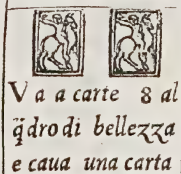 Va a carte 8 al
q̃dro di bellezza
e caua una carta